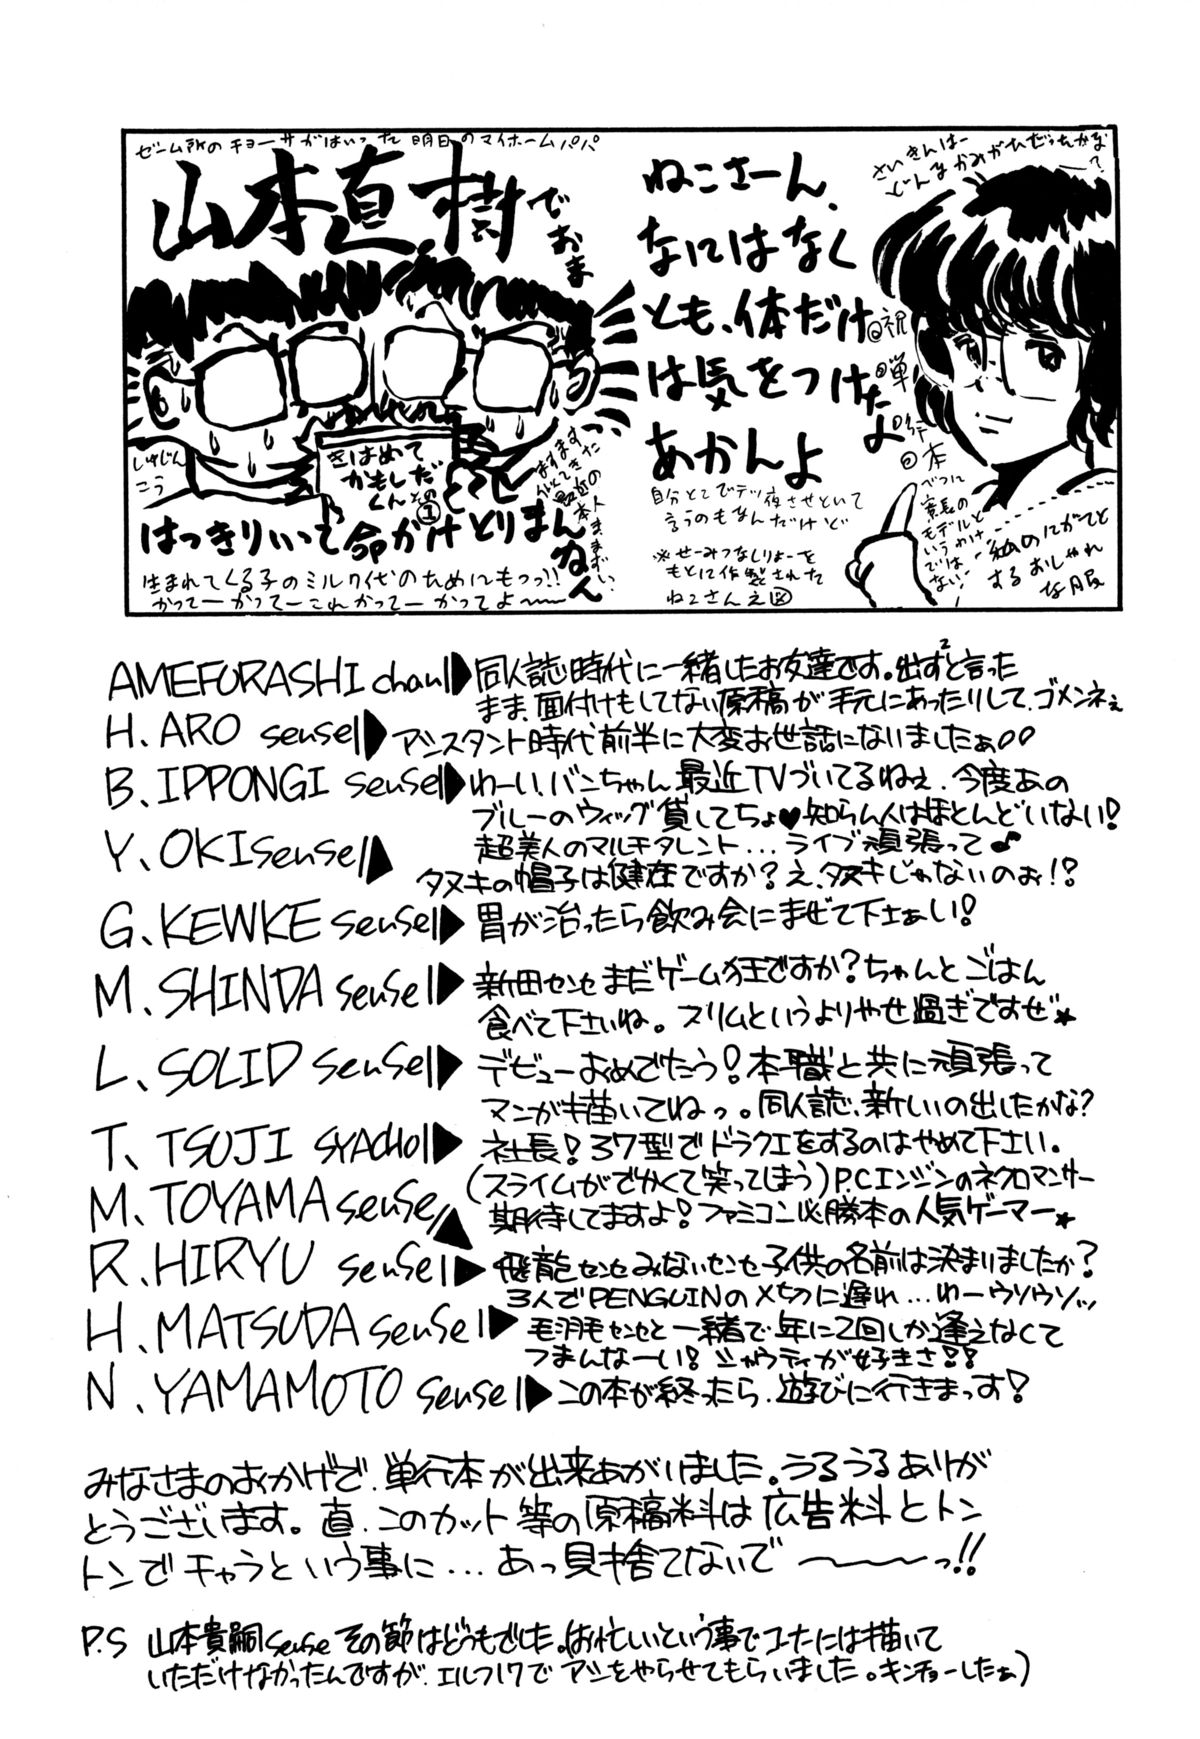 ゼーム所のチョーサがはいった明日のマイホームパパ
山本直樹でおま
ねこさーん、
なにはなく
とも、体だけ
は気をつけな
あかんよ
さいきんはー
どんなかみがひだったかな?
祝単行本
しゅじんこう
きはめて
かもしだ
くんその
①
はっきりいって命がけとりまんねん
生まれてくる子のミルク代のためにもっっ!!
かってーかってーこれかってーかってよ〜〜
自分とこでテツ夜させといて
言うのもなんだけど
※せーみつなしりょーを
もとに作製された
ねこさんえ図
べつに
寅長の
モデルと
いうわけ
ではない!
私のにがてと
するおしゃれ
な服
AMEFURASHI chan▶同人誌時代に一緒したお友達です。出ず²と言った
まま、面付けもしてない原稿が手元にあったりして、ゴメンネぇ
H. ARO sensei▶アシスタント時代前半に大変お世話になりましたぁ
B. IPPONGI sensei▶わーい、バンちゃん最近TVづいてるねぇ。今度あの
ブルーのウィッグ貸してちょ♥知らん人はほとんどいない!
Y. OKI sensei▶超美人のマルチタレント...ライブ頑張って♪
タヌキの帽子は健在ですか?え、タヌキじゃないのぉ!?
G. KEWKE sensei▶胃が治ったら飲み会にまぜて下さぁい!
M. SHINDA sensei▶新田センセまだゲーム狂ですか?ちゃんとごはん
食べて下さいね。スリムというよりやせ過ぎですぜ★
L. SOLID sensei▶デビューおめでたう!本職と共に頑張って
マンガも描いてねっ。同人誌、新しいの出したかな?
T. TSUJI SYACHO▶社長!37型でドラクエをするのはやめて下さい。
(スライムがでかくて笑ってしまう)P.Cエンジンのネクロマンサー
M. TOYAMA sensei▶期待してますよ!ファミコン必勝本の人気ゲーマー★
R. HIRYU sensei▶飛龍センセみないセンセ子供の名前は決まりましたか?
3人でPENGUINの〆切に遅れ...わーウソウソッ
H. MATSUDA sensei▶毛羽毛センセと一緒で年に2回しか逢えなくて
つまんなーい!シャウティが好きさ!!
N. YAMAMOTO sensei▶この本が終ったら、遊びに行きまっす!
みなさまのおかげで、単行本が出来あがりました。うるうるありが
とうございます。直、このカット等の原稿料は広告料とトン
トンでチャラという事に...あっ見捨てないで〜〜〜っ!!
P.S 山本貴嗣sensei その節はどうもでした。(お忙しいという事でコーナには描いて
いただけなかったんですが、エルフ17でアシをやらせてもらいました。キンチョーしたぁ)